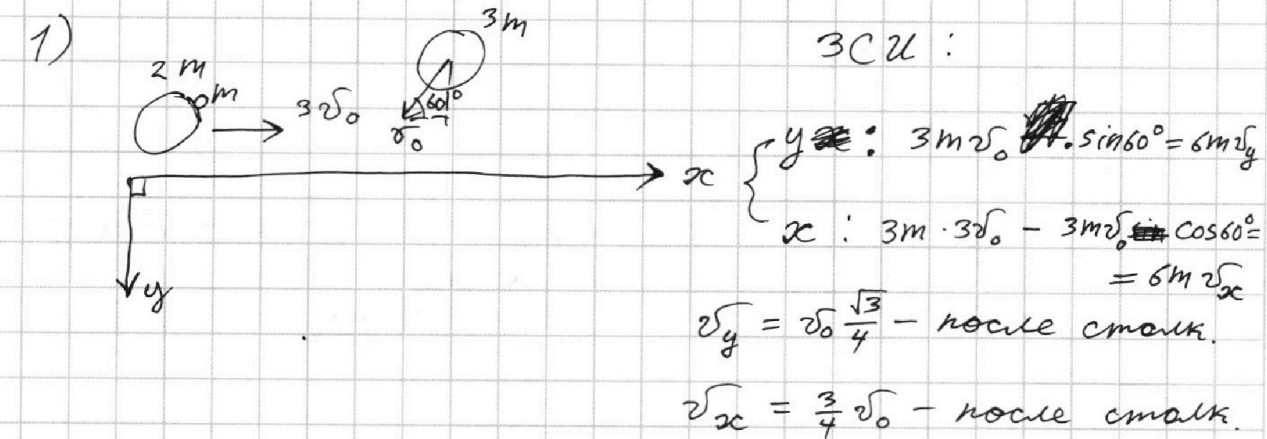 1)
2m
m
3v₀
3m
60°
v₀
x
y
ЗСИ :
y : 3mv₀ · sin60° = 6mv_y
x : 3m · 3v₀ - 3mv₀ cos60° =
= 6mv_x
v_y = v₀ √3/4 - после столк.
v_x = 3/4 v₀ - после столк.